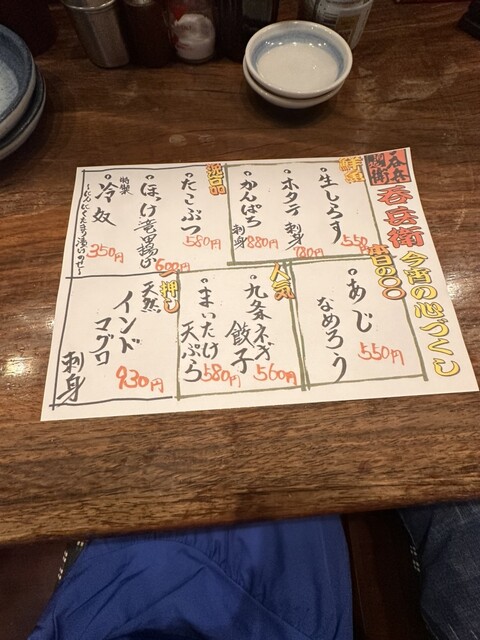 呑兵衛
呑兵衛 今宵の心づくし
鮮魚
・生しらす 550円
・ホタテ刺身 780円
・かんぱち刺身 880円
本日の〇〇
・あじなめろう 550円
逸品
・たこぶつ 580円
・ほっけ竜田揚げ 600円
・特製 冷奴 350円
人気
・九条ネギ餃子 560円
・まいたけ天ぷら 580円
押し
天然インドマグロ刺身 930円